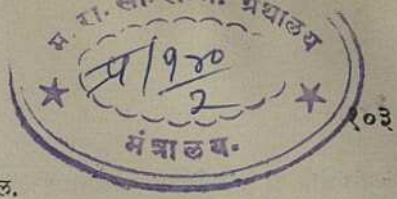 म. रा. ग्रंथालय
प्र/१४०
२
मंत्रालय.
१०३
ल.